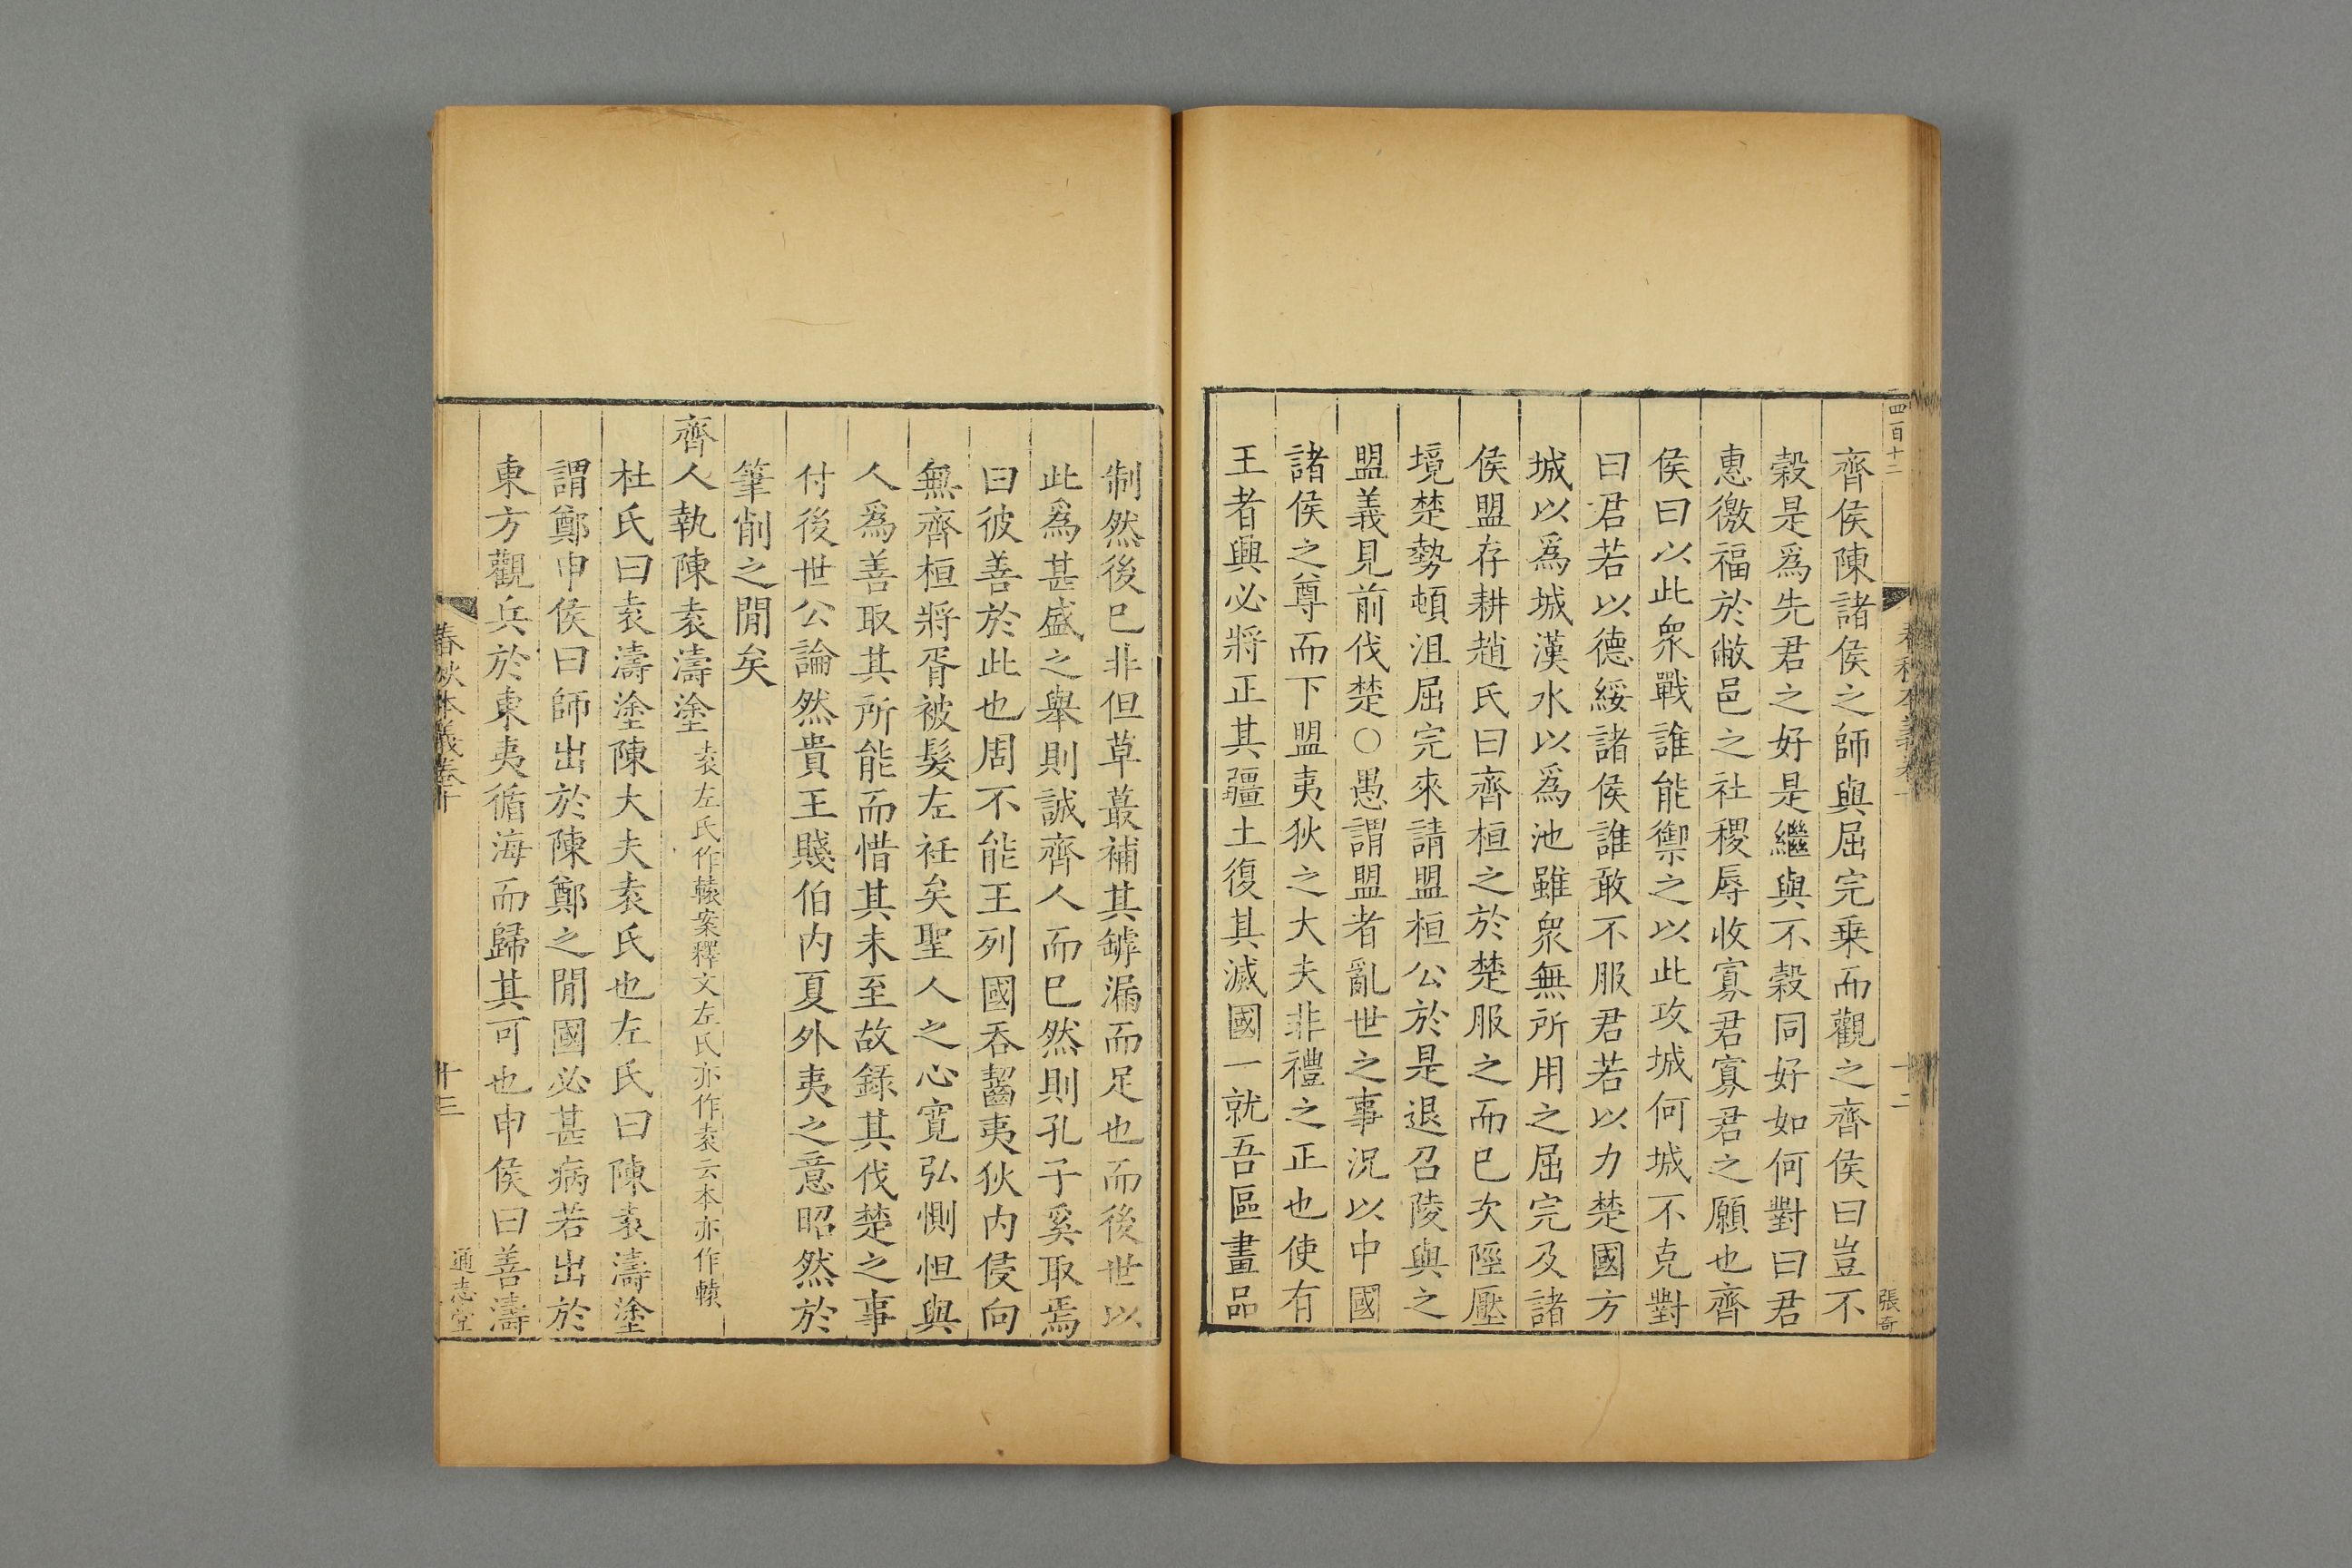 四百十二
春秋本義卷十
十二
張奇
齊侯陳諸侯之師與屈完乗而觀之齊侯曰豈不
榖是爲先君之好是繼與不榖同好如何對曰君
惠徼福於敝邑之社稷辱收寡君寡君之願也齊
侯曰以此衆戰誰能禦之以此攻城何城不克對
曰君若以德綏諸侯誰敢不服君若以力楚國方
城以爲城漢水以爲池雖衆無所用之屈完及諸
侯盟存耕趙氏曰齊桓之於楚服之而已次陘壓
境楚勢頓沮屈完來請盟桓公於是退召陵與之
盟義見前伐楚○愚謂盟者亂世之事况以中國
諸侯之尊而下盟夷狄之大夫非禮之正也使有
王者興必將正其疆土復其滅國一就吾區畫品
制然後已非但草蕞補其罅漏而足也而後世以
此爲甚盛之舉則誠齊人而已然則孔子奚取焉
曰彼善於此也周不能王列國吞齧夷狄内侵向
無齊桓將胥被髮左衽矣聖人之心寛弘惻怛與
人爲善取其所能而惜其未至故錄其伐楚之事
付後世公論然貴王賤伯内夏外夷之意昭然於
筆削之閒矣
齊人執陳袁濤塗袁左氏作轅案釋文左氏亦作袁云本亦作轅
杜氏曰袁濤塗陳大夫袁氏也左氏曰陳袁濤塗
謂鄭申侯曰師出於陳鄭之閒國必甚病若出於
東方觀兵於東夷循海而歸其可也申侯曰善濤
春秋本義卷十
十三
通志堂